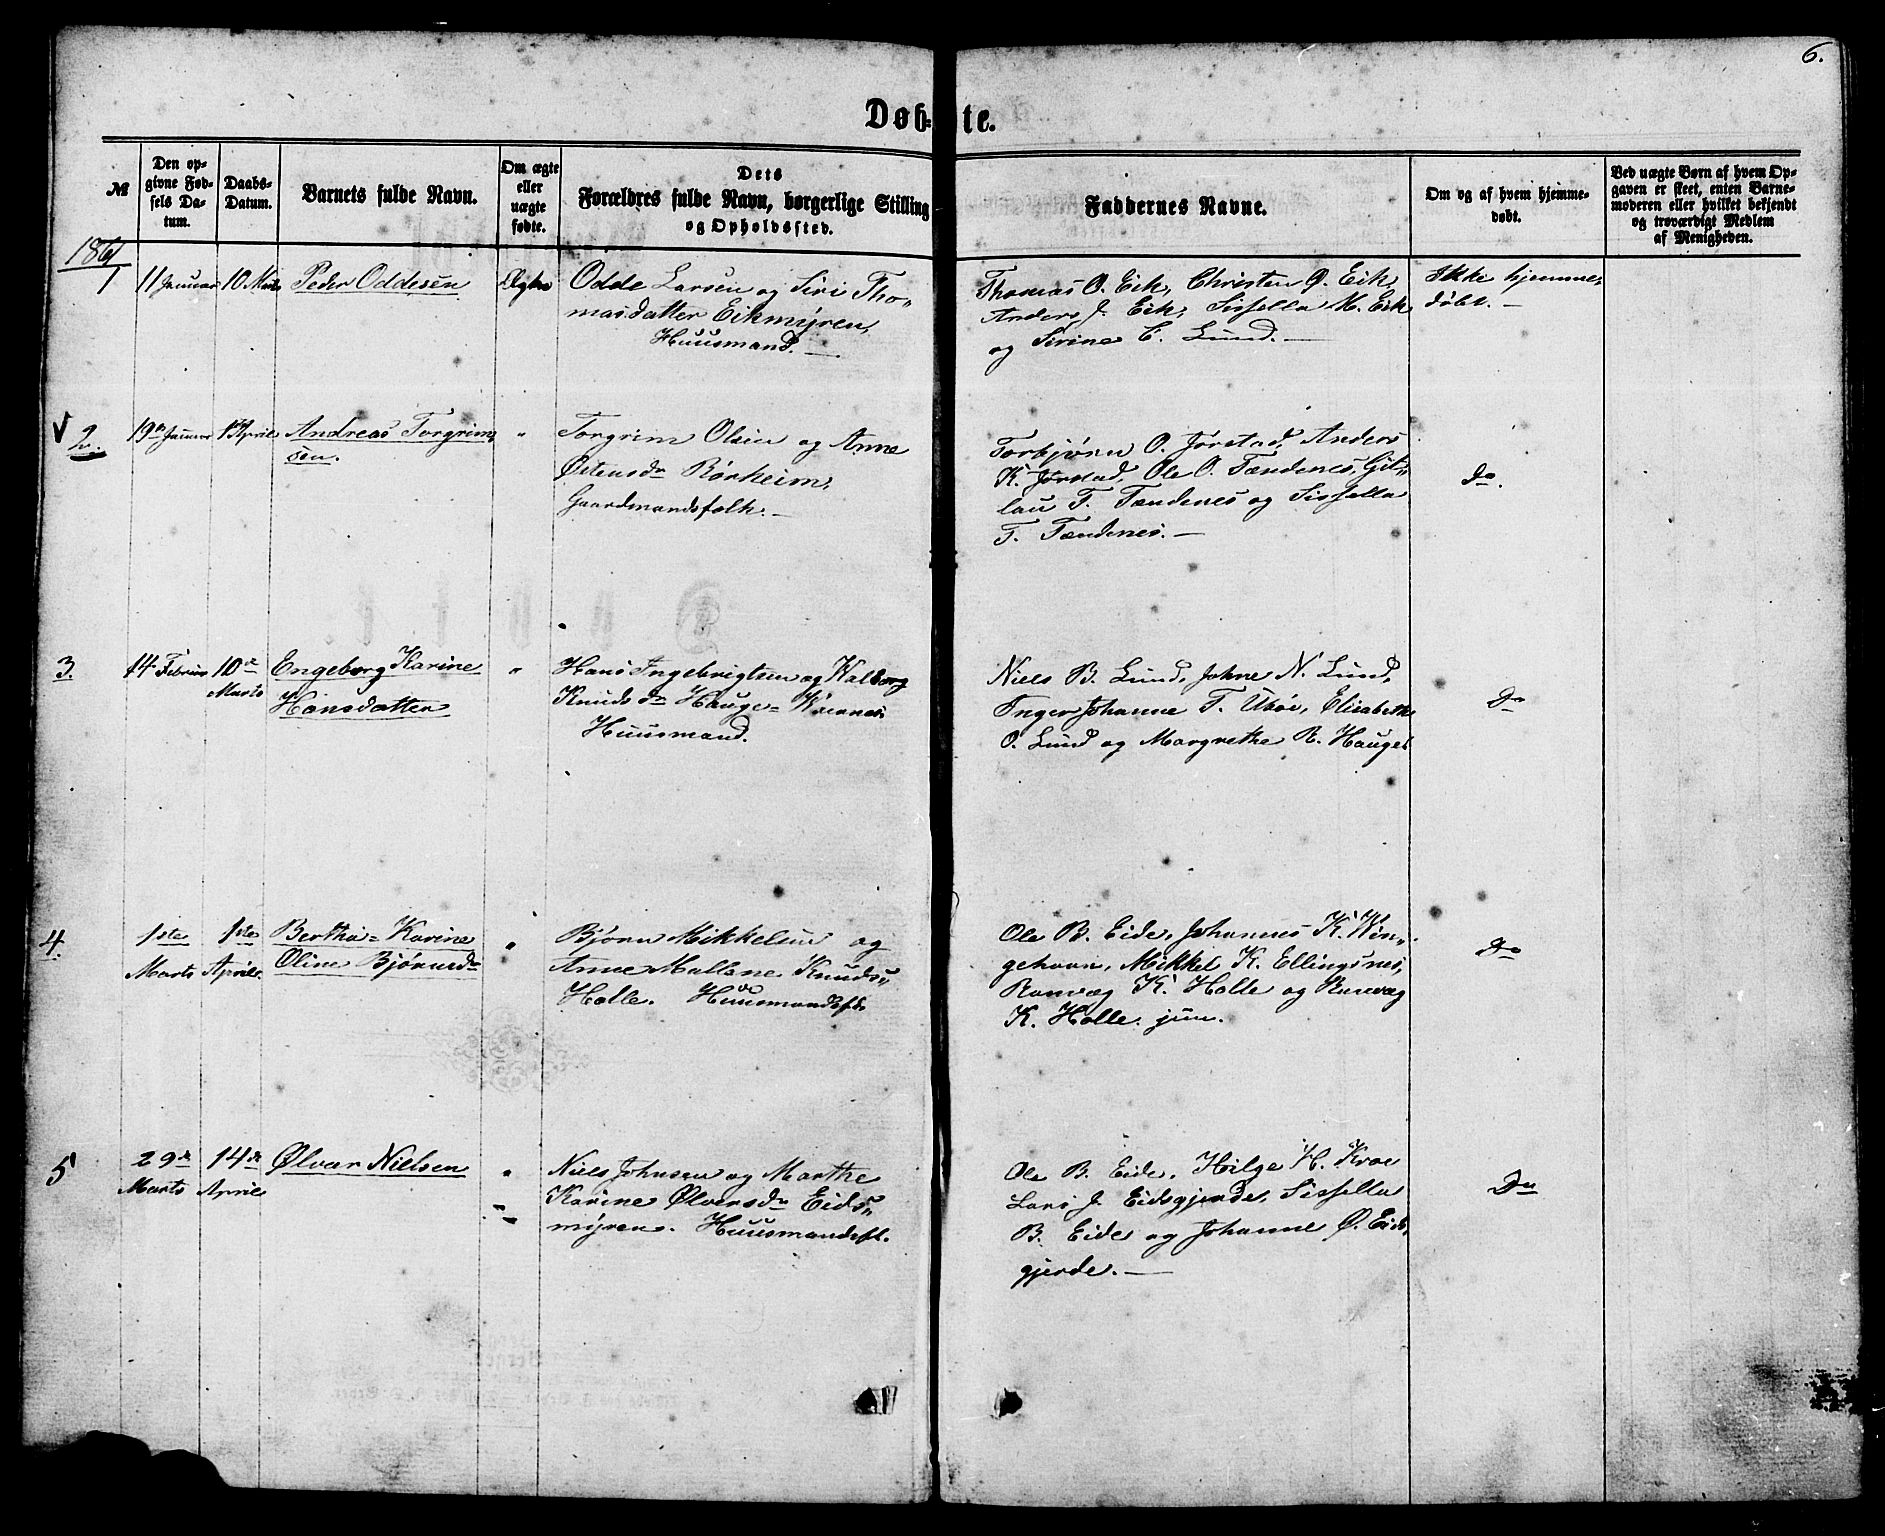 6.
Døb-te.
№
Den op-
givne Fød-
sels Da-
tum.
Daabs-
Datum.
Barnets fulde Navn.
Om ægte
eller
uægte
fødte.
Dets
Forældres fulde Navn, borgerlige Stilling
og Opholdssted.
Faddernes Navne.
Om og af hvem hjemme-
døbt.
Ved uægte Børn af hvem Op-
gaven er skeet, enten Barne-
moderen eller hvilket bekjendt
og troværdigt Medlem
af Menigheden.
1861
1
11 Januar
10 Marts
Peder Oddesen
Ægte
Odde Larsen og Siri Tho„
masdatter Eikmyren,
Huusmand. —
Thomas O. Eik, Christen O. Eik,
Anders J. Eik, Sissella M. Eik
og Sirine C. Lund. —
Ikke hjemme„
døbt. —
2.
19de Januar
1ste April
Andreas Torgrim„
sen.
"
Torgrim Olsen og Anne
Østensdr Rørheim,
Gaardmandsfolk. —
Torbjørn O. Jørstad, Anders
K. Jørstad, Ole O. Tændenes, Git„
lau T. Tændenes og Sissella
T. Tændenes. —
do.
3.
14 Februar
10de
Marts
Engeborg Karine
Hansdatter
"
Hans Ingebrigtsen og Walborg
Knudsdr Hauge=
Huusmand.
Niels B. Lund, Johne N. Lund,
Inger Johanne T. Ubøe, Elisabeth
O. Lund og Margrethe R. Hauge.
Do
4.
1ste
Marts
1ste
April.
Bertha=Karine
Oline Bjørnsdr
"
Bjørn Mikkelsen og
Anne Mallane Knuds„
Halle. Huusmandsf.
Ole B. Eide, Johannes K. Win„
gehavn, Mikkel K. Ellingsnes,
Ranvæg K. Halle og Ranvæg
K. Halle. jun.
Do
5
29de
Marts
14de
April
Ølver Nielsen
"
Niels Johnsen og Marthe
Karine Ølversdr Eids„
myren. Huusmandsf.
Ole B. Eide, Hilge H. Kroe
Lars J. Eidsgjerde, Sissella
B. Eide og Johanne Ø. Eids„
gjerde. —
Do